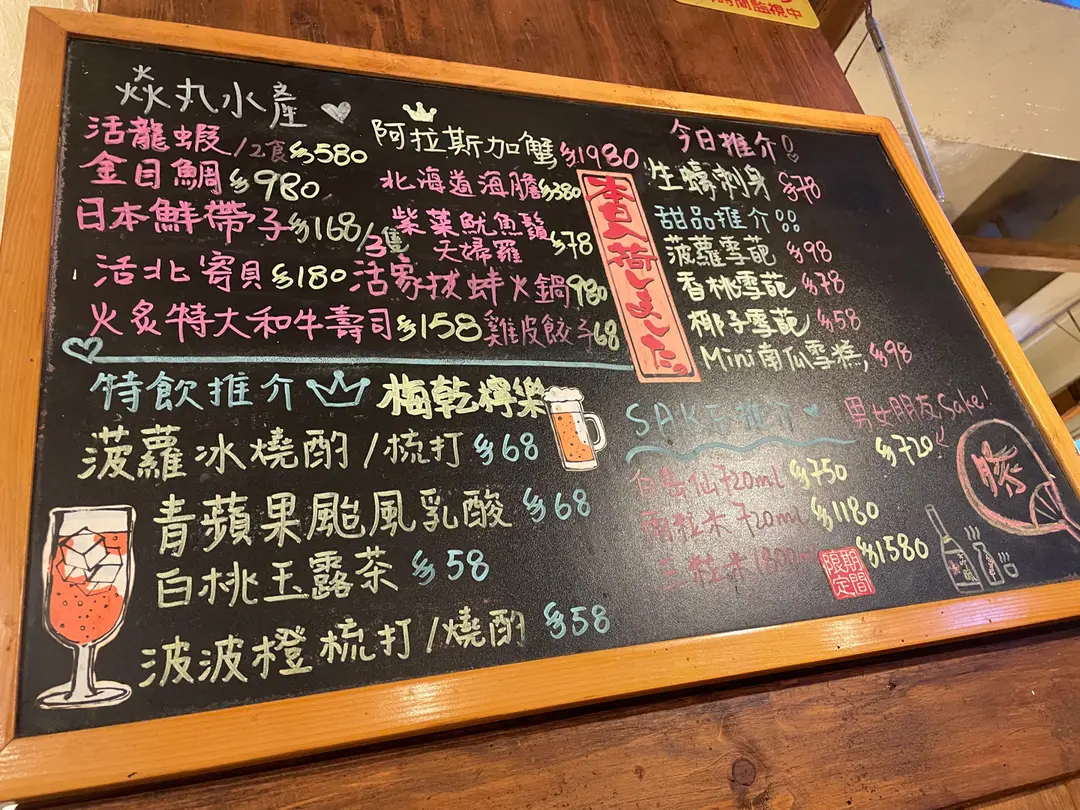 時間監視中
焱丸水產
活龍蝦/2食 $580
金目鯛 $980
日本鮮帶子 $168/3隻
活北寄貝 $180
火炙特大和牛壽司 $158
阿拉斯加蟹 $1980
北海道海膽 $380
紫菜魷魚鬚天婦羅 $78
活家拔蚌火鍋 980
雞皮餃子 68
本日入荷しました。
今日推介!
生蠔刺身 $78
甜品推介!!
菠蘿雪葩 $98
香桃雪葩 $78
椰子雪葩 $58
Mini南瓜雪糕, $98
特飲推介
梅乾檸樂
菠蘿冰燒酌/梳打 $68
青蘋果颱風乳酸 $68
白桃玉露茶 $58
波波橙梳打/燒酌 $58
SAKE推介
男女朋友Sake!
$720
仙720ml $750
粒米720ml $1180
粒米1800ml $1580
期間限定
豚